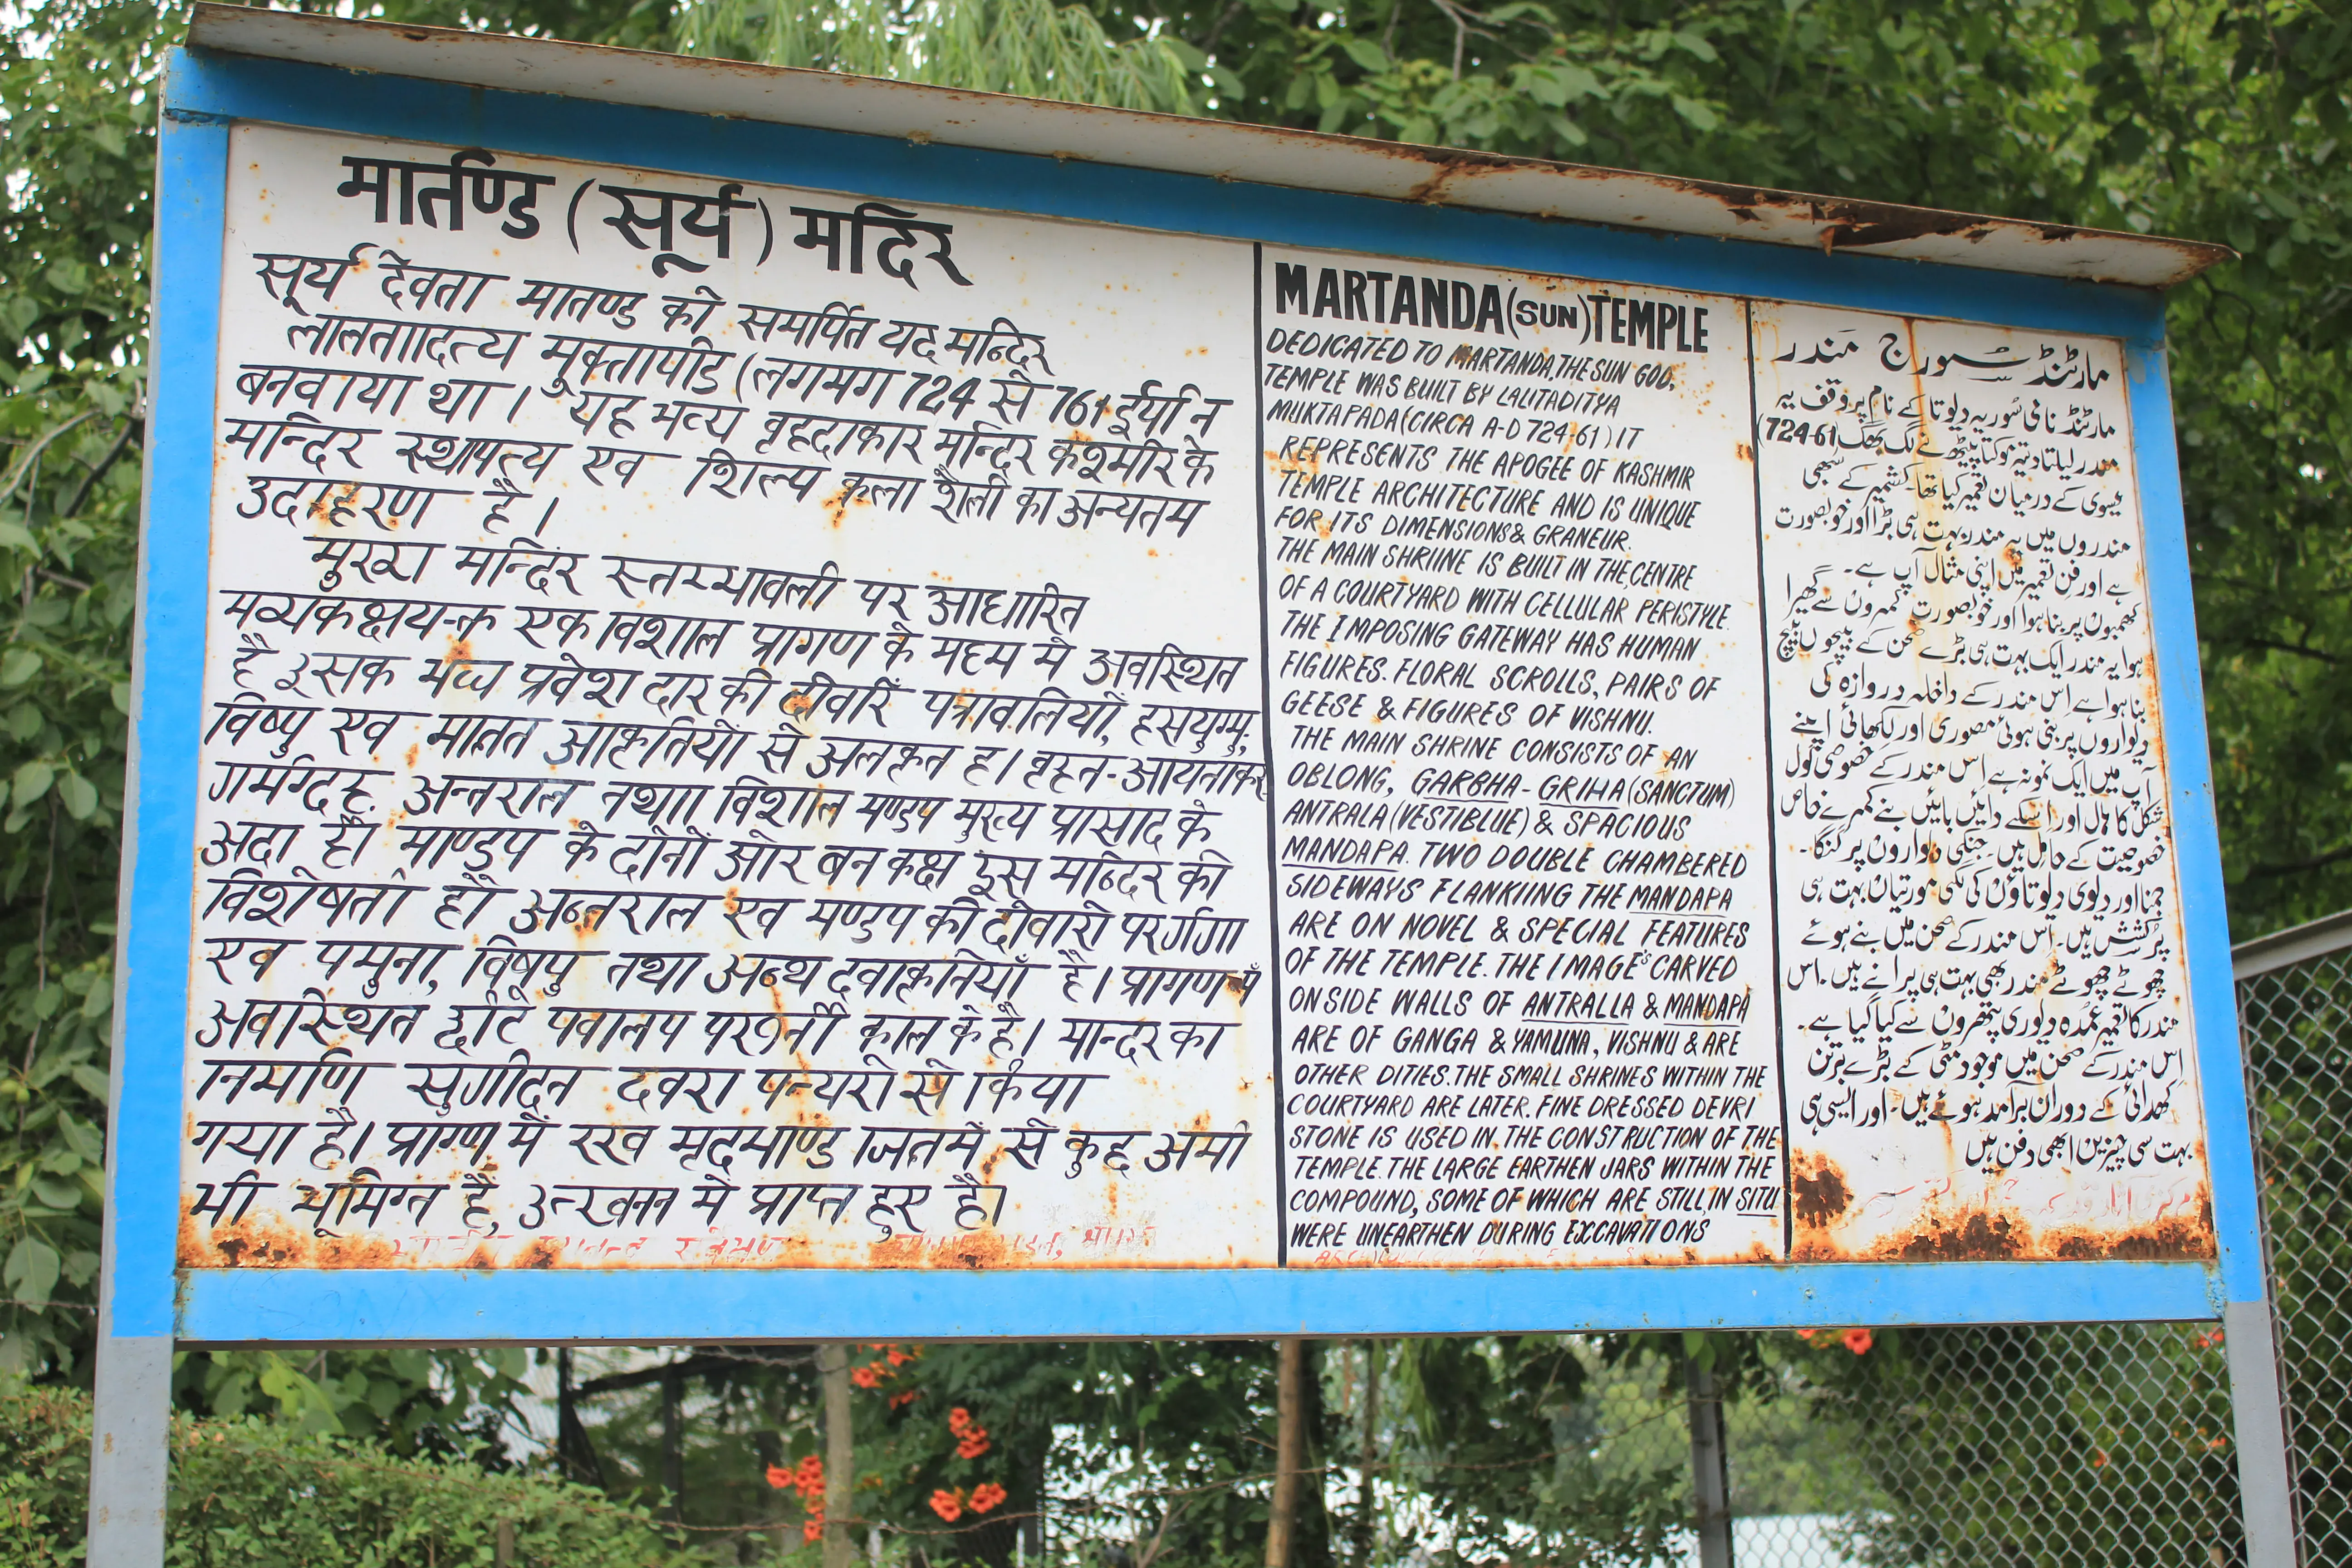 मार्तण्ड (सूर्य) मदिर
सूर्य देवता मातण्ड को समर्पित यद मन्दिर
लालताादित्य मुक्तापीड (लगमग 724 से 761 ईर्या न
बनवाया था। यह भव्य वृहदाकार मन्दिर कश्मीर के
मन्दिर स्थापत्य एव शिल्प कला शैली का अन्यतम
उदाहरण है।
मुख्य मन्दिर स्तम्भावली पर आधारित
एक विशाल प्रागण के मद्दम मे अवस्थित
है इसक प्रवेश दार की दीवारें पत्रावलियों, हसयुग्मु,
विष्पु एव मानत आकृतियों से अलकृत ह। वृहत-आयताकर
अन्तराल तथाा विशाल मण्डप मुख्य प्रासाद के
अदा है। माण्डप के दोनों ओर बन कक्ष इस मन्दिर की
विशेषता है। अन्तराल एव मण्डप की दीवारो पर गंगा
एव पमुना, विषपु तथा अन्थ दवाकृतियाँ है। प्रागण
अवस्थित काल के है। मान्दर का
निर्माण दवरा से किया
गया है। प्राग्ण में रखव मृदमाण्ड जितमे से कुद्द अमी
मी भूमिग्त है, उत्खनन मे प्राप्त हुए है।
MARTANDA (SUN) TEMPLE
DEDICATED TO MARTANDA, THE SUN GOD,
TEMPLE WAS BUILT BY LALITADITYA
MUKTAPADA (CIRCA A-D 724-61) IT
REPRESENTS THE APOGEE OF KASHMIR
TEMPLE ARCHITECTURE AND IS UNIQUE
FOR ITS DIMENSIONS & GRANEUR.
THE MAIN SHRIINE IS BUILT IN THE, CENTRE
OF A COURTYARD WITH CELLULAR PERISTYLE.
THE IMPOSING GATEWAY HAS HUMAN
FIGURES. FLORAL SCROLLS, PAIRS OF
GEESE & FIGURES OF VISHNU.
THE MAIN SHRINE CONSISTS OF AN
OBLONG, GARBHA-GRIHA (SANCTUM)
ANTRALA (VESTIBLUE) & SPACIOUS
MANDAPA. TWO DOUBLE CHAMBERED
SIDEWAYS FLANKIING THE MANDAPA
ARE ON NOVEL & SPECIAL FEATURES
OF THE TEMPLE. THE IMAGES CARVED
ON SIDE WALLS OF ANTRALLA & MANDAPA
ARE OF GANGA & YAMUNA, VISHNU & ARE
OTHER DITIES. THE SMALL SHRINES WITHIN THE
COURTYARD ARE LATER. FINE DRESSED DEVRI
STONE IS USED IN THE CONSTRUCTION OF THE
TEMPLE. THE LARGE EARTHEN JARS WITHIN THE
COMPOUND, SOME OF WHICH ARE STILL, IN SITU
WERE UNEARTHEN DURING EXCAVATIONS
مارٹنڈ سورج مندر
مارٹنڈ نامی سُوریہ دیوتا کے نام پر وقف یہ
مندر لیلتادتیہ موکتا پیٹھ نے لگ بھگ (724-61
عیسوی کے درمیان تعمیر کیا تھا۔ کشمیر کے سبھی
مندروں میں یہ مندر بہت ہی بڑا اور خوبصورت
ہے اور فن تعمیر میں اپنی مثال آپ ہے۔
کھمبوں پر بنا ہوا اور خوبصورت کمروں سے گھیرا
ہوا یہ مندر ایک بہت ہی بڑے صحن کے بیچوں بیچ
بنا ہوا ہے اِس مندر کے داخلہ دروازہ کی
دیواروں پر بنی ہوئی مصوری اور لکھائی اپنے
آپ میں ایک نمونہ ہے اِس مندر کے خصوصی گول
شکل کا ہال اور اسکے دائیں بائیں بنے کمرے خاص
خصوصیت کے حامل ہیں۔ جنکی دیواروں پر گنگا۔
جمنا اور دیوی دیوتاوں کی مورتیاں بہت ہی
پرکشش ہیں۔ اس مندر کے صحن میں بنے ہوئے
چھوٹے چھوٹے مندر بھی بہت ہی پرانے ہیں۔ اس
مندر کا تعمیر عمدہ دیوری پتھروں سے کیا گیا ہے۔
اس مندر کے صحن میں موجود مٹی کے بڑے برتن
کھدائی کے دوران برآمد ہوئے ہیں۔ اور ایسی ہی
بہت سی چیزیں ابھی دفن ہیں